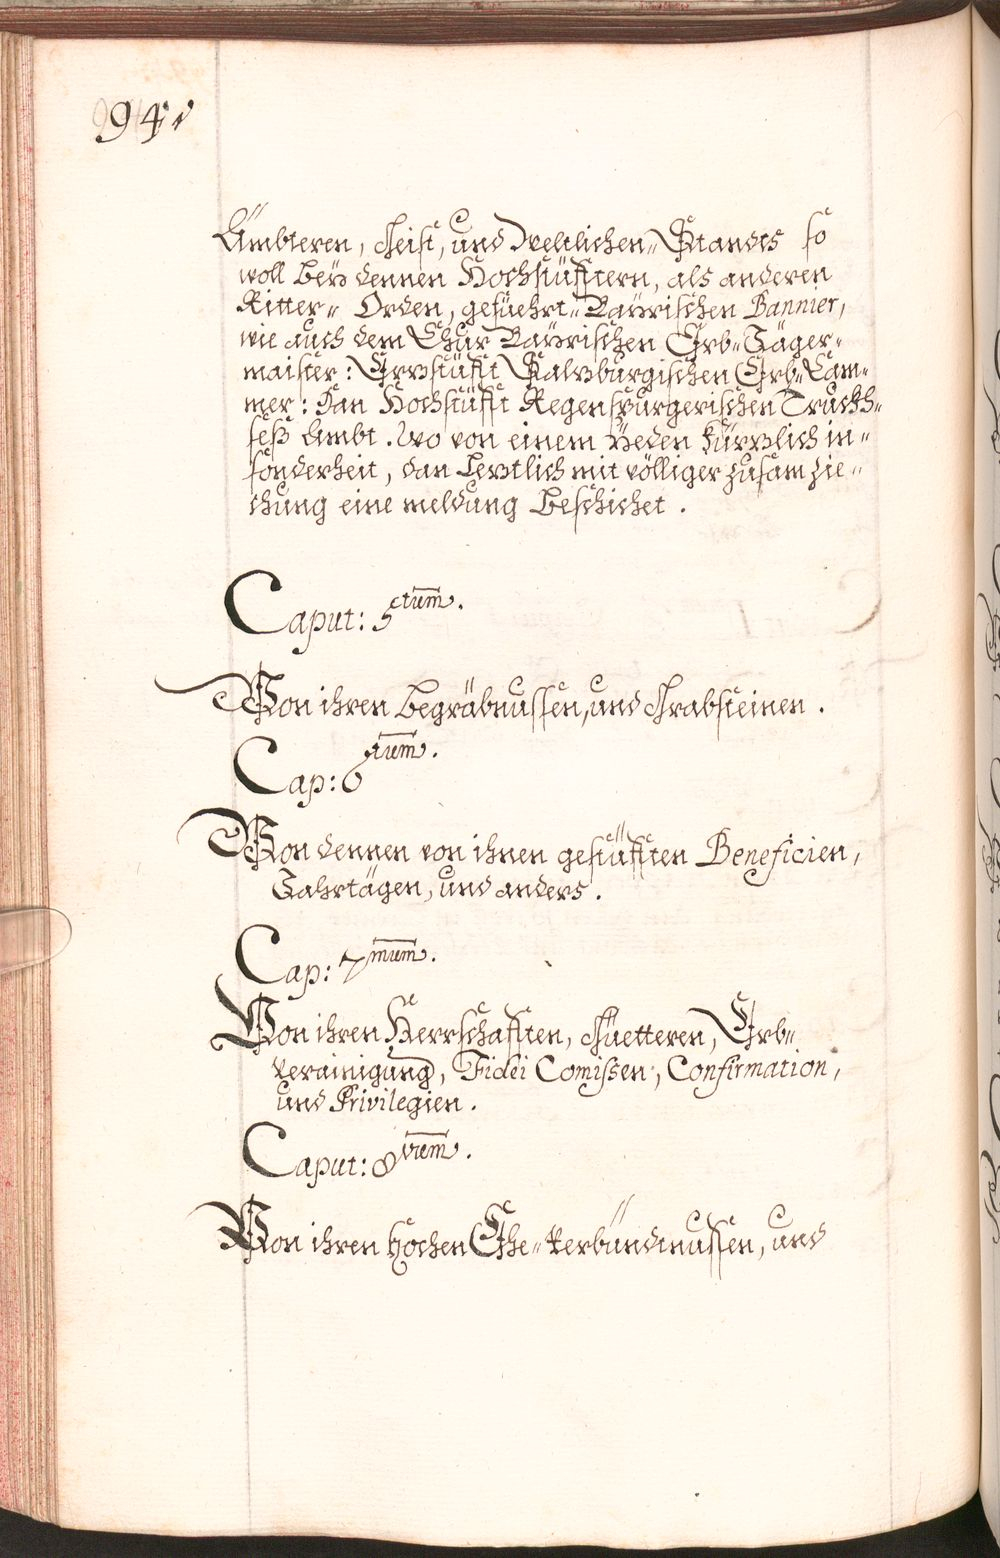 94v
Ämbteren, Geist, und Weltlichen Standts so
woll bey dennen Hochstüfftern, als anderen
Ritter„ Orden, gefüehrt„ Bayrischen Bannier,
wie auch dem Chur Bayrischen Erb„Jäger„
maister: Erzstüfft Salzburgischen Erb„Cam„
mer: dan Hochstüfft Regenspurgerischen Truckh„
seß Ambt. Wo von einem yeden kürzlich in„
sonderheit, dan leztlich mit völliger zusam zie„
chung eine meldung beschichet.
Caput: 5tum.
Von ihren begräbnussen, und Grabsteinen.
Cap: 6tum.
Von dennen von ihnen gestüfften Beneficien,
Jahrtägen, und anders.
Cap: 7mum.
Von ihren Herrschafften, Güetteren, Erb„
verainigung, Fidei Comissen, Confirmation,
und Privilegien.
Caput: 8vum.
Von ihren hochen Ehe„verbündnussen, und